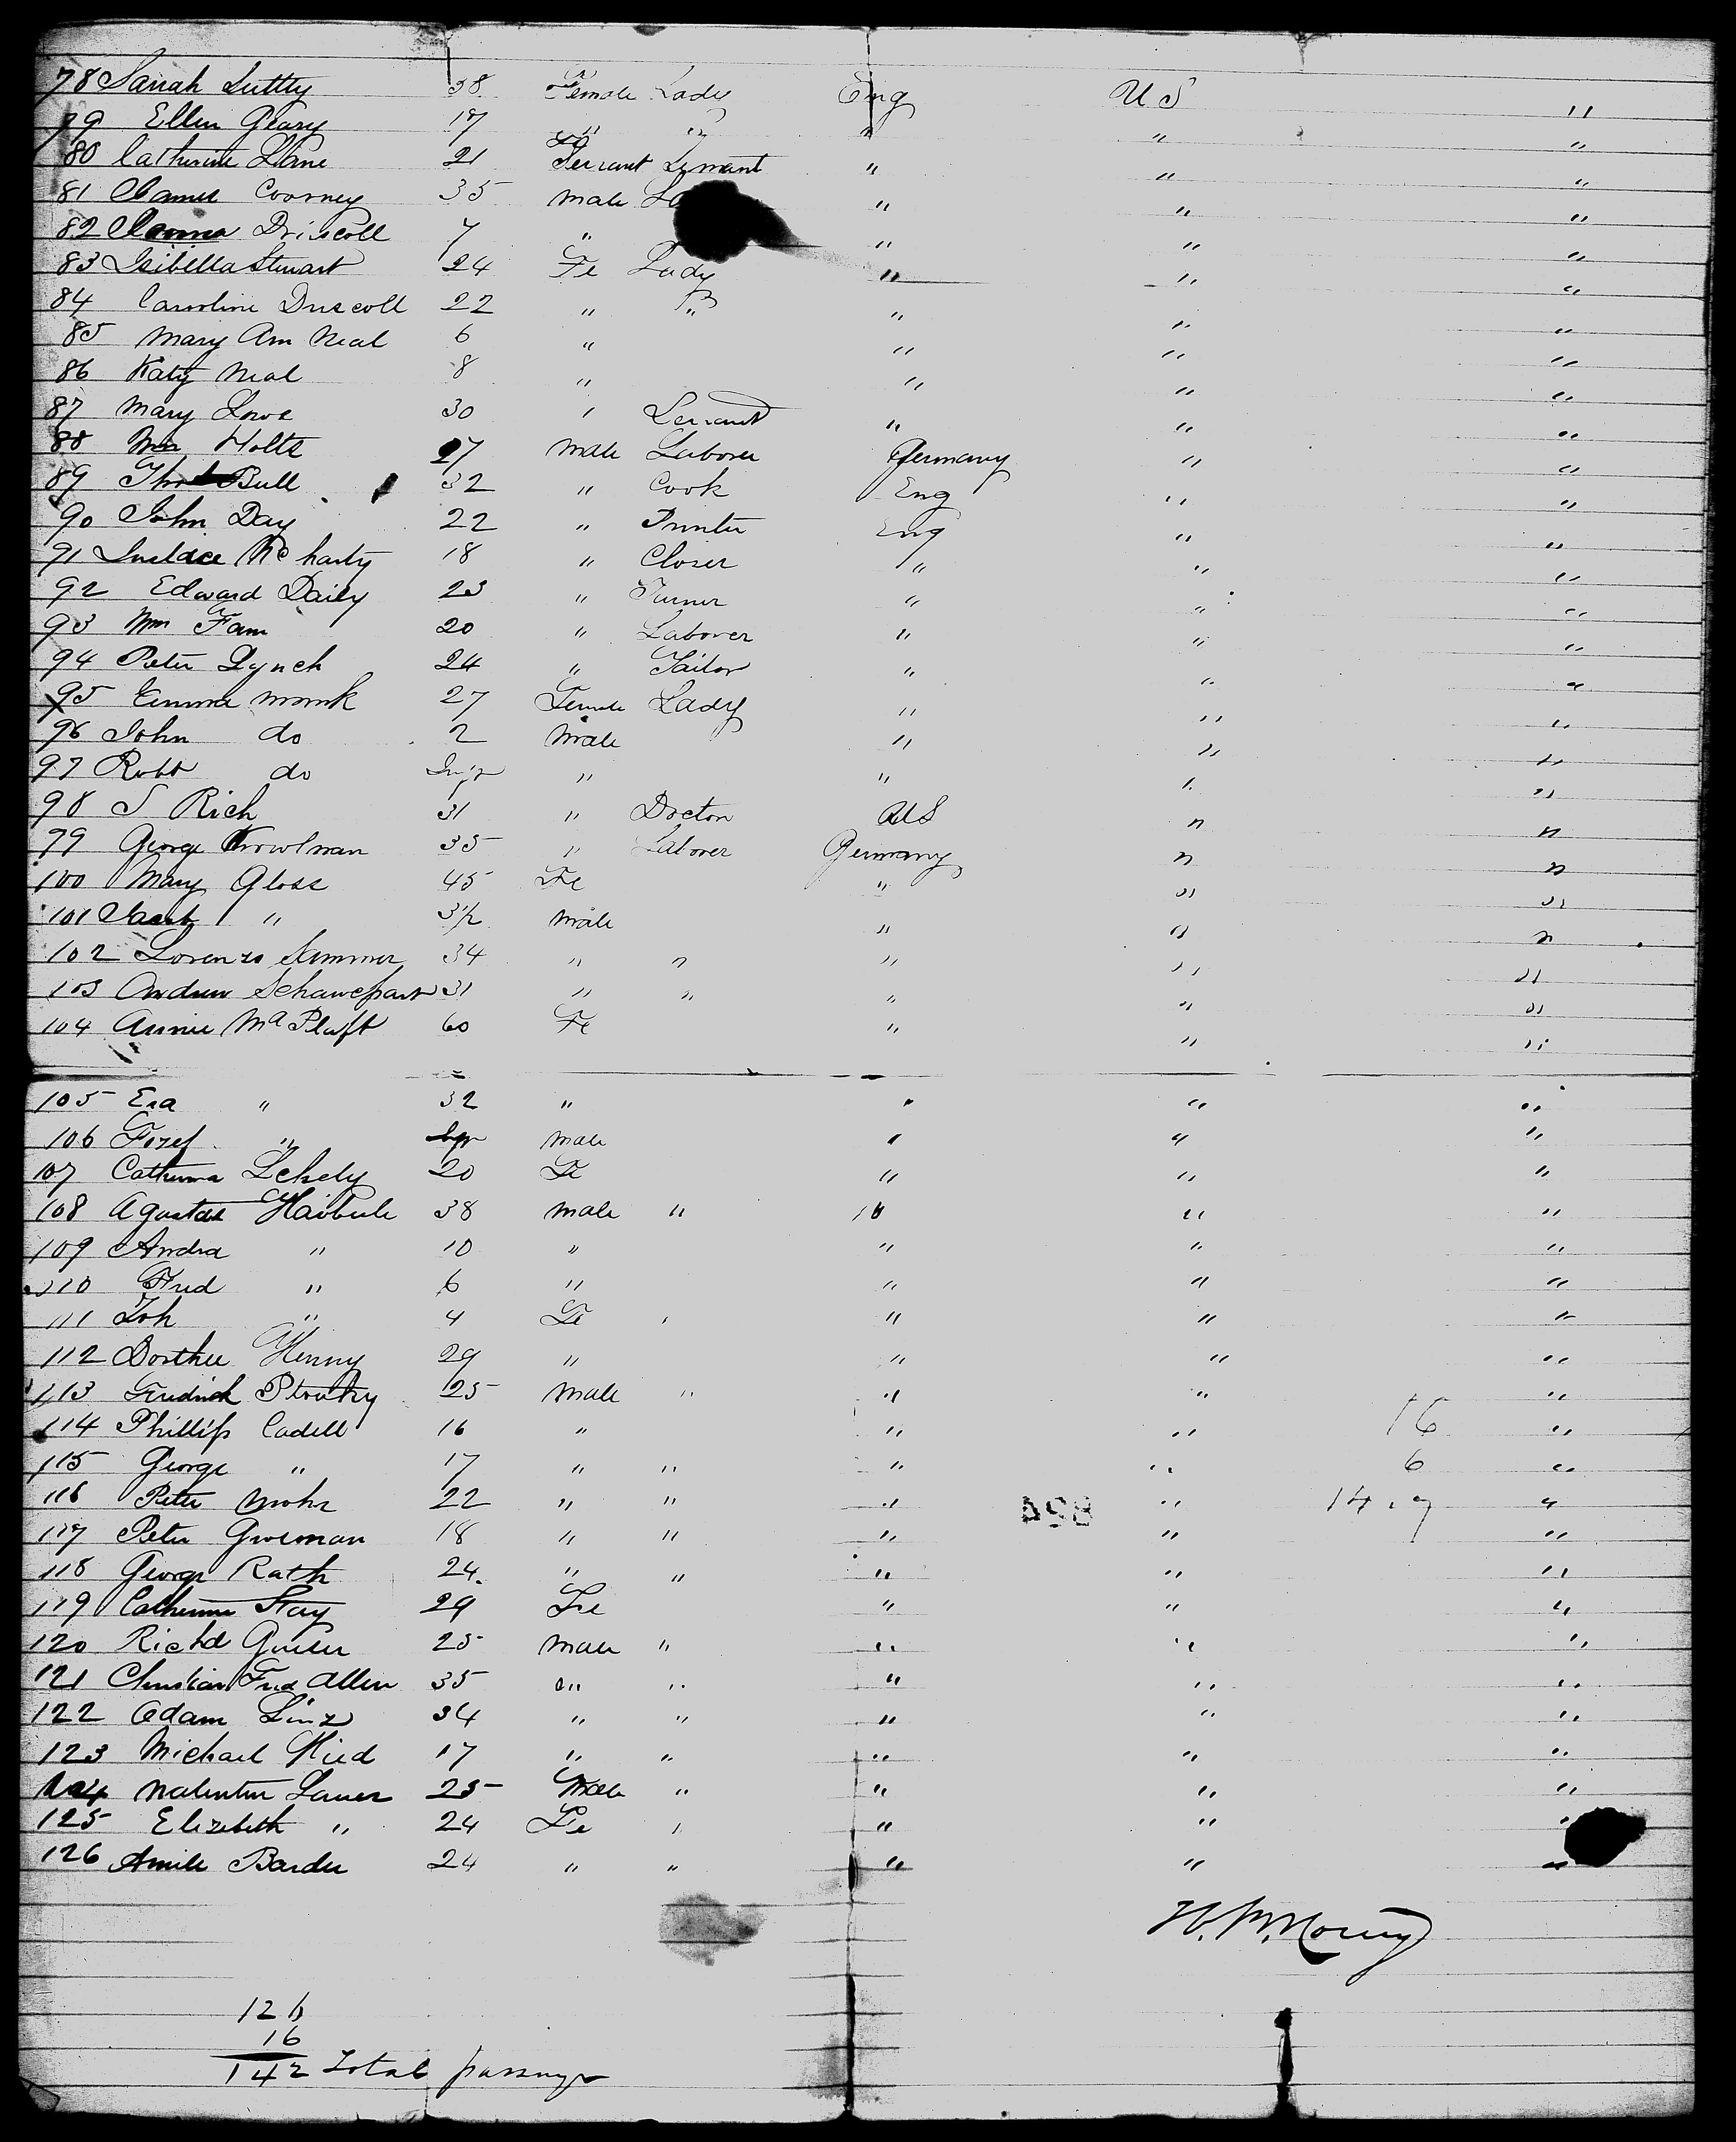 78 Sarah Luttly 38 Female Lady Eng U S "
79 Ellen Geary 17 " " " " "
80 Catherine Lane 21 Servant Servant " " "
81 James Coorney 35 male La " " "
82 Driscoll 7 " " " "
83 Isibella Stewart 24 Fe Lady " " "
84 Caroline Driscoll 22 " " " " "
85 Mary Ann Neal 6 " " " "
86 Katy Neal 8 " " " "
87 Mary Lowe 30 " Servant " " "
88 Wm Holts 27 male Laborer Germany " "
89 Thos Bull 32 " Cook Eng " "
90 John Day 22 " Printer Eng " "
91 Mc harty 18 " Closer " " "
92 Edward Daily 23 " Turner " " "
93 Wm Fam 20 " Laborer " " "
94 Peter Lynch 24 " Tailor " " "
95 Emma Monk 27 Female Lady " " "
96 John do 2 male " " "
97 Robt do Inft " " " "
98 S Rich 31 " Doctor U S " "
99 George 35 " Laborer Germany " "
100 Mary Gloss 45 Fe " " "
101 Jacob " 3½ male " " "
102 Lorenzo Sammer 34 " " " " "
103 Andrew 31 " " " " "
104 Annie Ma 60 Fe " " "
105 Eva " 32 " " " "
106 Fozef " male " " "
107 Catherina Lehely 20 Fe " " "
108 38 male " " " "
109 Andra " 10 " " " "
110 Fred " 6 " " " "
111 Joh " 4 Fe " " " "
112 Dorthee Henny 29 " " " "
113 Fredrick 25 male " " " "
114 Phillip Cadell 16 " " " 16 "
115 George " 17 " " " " 6 "
116 Peter Mohr 22 " " " 898 " 14.7 "
117 Peter Grosman 18 " " " " "
118 George Rath 24 " " " " "
119 Catherine Stay 29 Fe " " "
120 Richd Geiser 25 male " " " "
121 Christian Fred Allen 35 " " " " "
122 Adam Linz 34 " " " " "
123 Michael Hied 17 " " " " "
124 Lauer 25 Male " " " "
125 Elizebeth " 24 Fe " " " "
126 Amile Barder 24 " " " " "
126
16
142 Total passenger